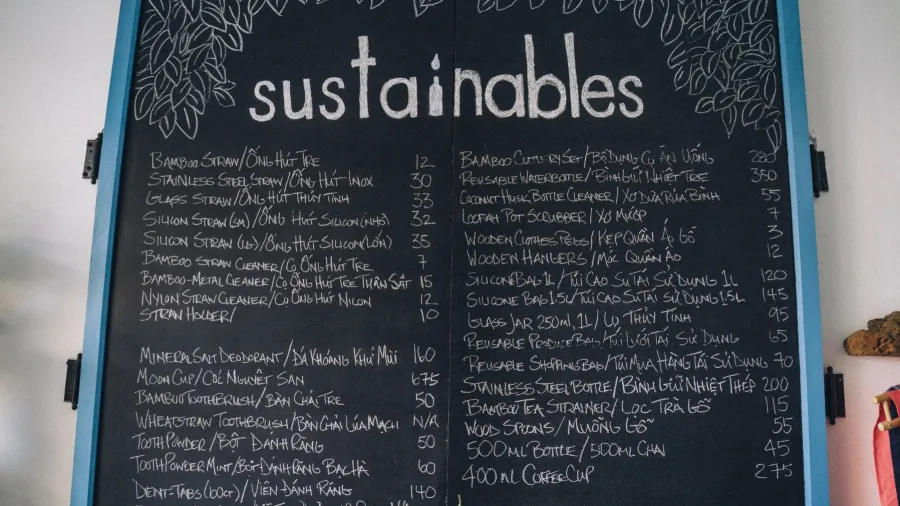 sustainables
BAMBOO STRAW/ỐNG HÚT TRE 12
STAINLESS STEEL STRAW/ỐNG HÚT INOX 30
GLASS STRAW/ỐNG HÚT THỦY TINH 33
SILICON STRAW (SM)/ỐNG HÚT SILICON (NHỎ) 32
SILICON STRAW (LG)/ỐNG HÚT SILICON (LỚN) 35
BAMBOO STRAW CLEANER/CỌ ỐNG HÚT TRE 7
BAMBOO-METAL CLEANER/CỌ ỐNG HÚT TRE THÂN SẮT 15
NYLON STRAW CLEANER/CỌ ỐNG HÚT NILON 12
STRAW HOLDER/ 10
MINERAL SALT DEODORANT/ĐÁ KHOÁNG KHỬ MÙI 160
MOON CUP/CỐC NGUYỆT SAN 675
BAMBOO TOOTHBRUSH/BÀN CHẢI TRE 50
WHEATSTRAW TOOTHBRUSH/BÀN CHẢI LÚA MẠCH N/A
TOOTH POWDER/BỘT ĐÁNH RĂNG 50
TOOTH POWDER MINT/BỘT ĐÁNH RĂNG BẠC HÀ 60
DENT-TABS (60CT)/VIÊN ĐÁNH RĂNG 140
BAMBOO CUTLERY SET/BỘ DỤNG CỤ ĂN UỐNG 280
REUSABLE WATERBOTTLE/BÌNH GIỮ NHIỆT TRE 350
COCONUT HUSK BOTTLE CLEANER/XƠ DỪA RỬA BÌNH 55
LOOFAH POT SCRUBBER/XƠ MƯỚP 7
WOODEN CLOTHES PEGS/KẸP QUẦN ÁO GỖ 3
WOODEN HANGERS/MÓC QUẦN ÁO 12
SILICONE BAG 1L/TÚI CAO SU TÁI SỬ DỤNG 1L 120
SILICONE BAG 1.5L/TÚI CAO SU TÁI SỬ DỤNG 1.5L 145
GLASS JAR 250ML, 1L/LỌ THỦY TINH 95
REUSABLE PRODUCE BAG/TÚI LƯỚI TÁI SỬ DỤNG 65
REUSABLE SHOPPING BAG/TÚI MUA HÀNG TÁI SỬ DỤNG 70
STAINLESS STEEL BOTTLE/BÌNH GIỮ NHIỆT THÉP 200
BAMBOO TEA STRAINER/LỌC TRÀ GỖ 115
WOOD SPOONS/MUỖNG GỖ 55
500ML BOTTLE/500ML CHAI 45
400ML COFFEE CUP 275